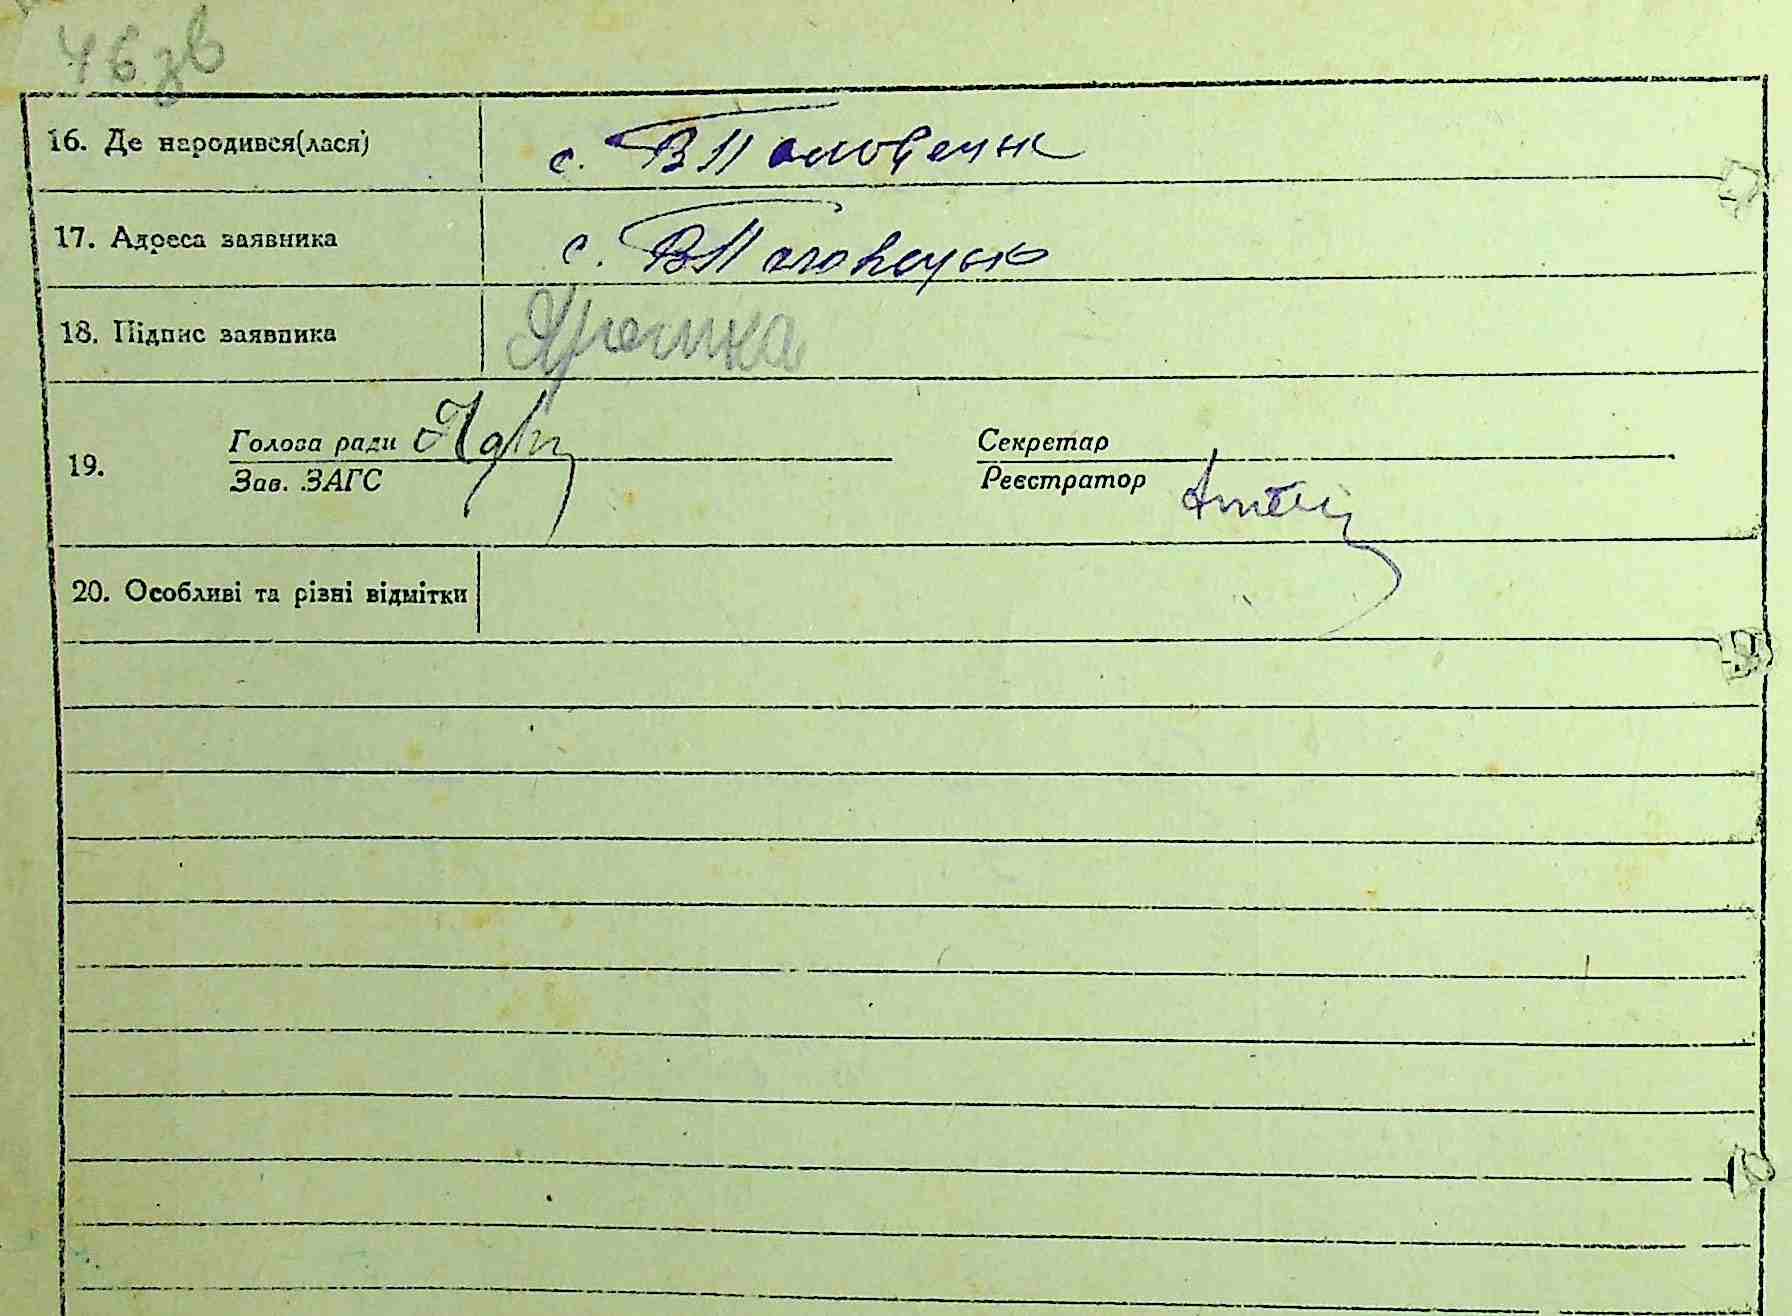 46 зв
16. Де народився(лася) с. В Половецьк
17. Адреса заявника с. В Половецьк
18. Підпис заявника
19. Голова ради Секретар
Зав. ЗАГС Реєстратор
20. Особливі та різні відмітки